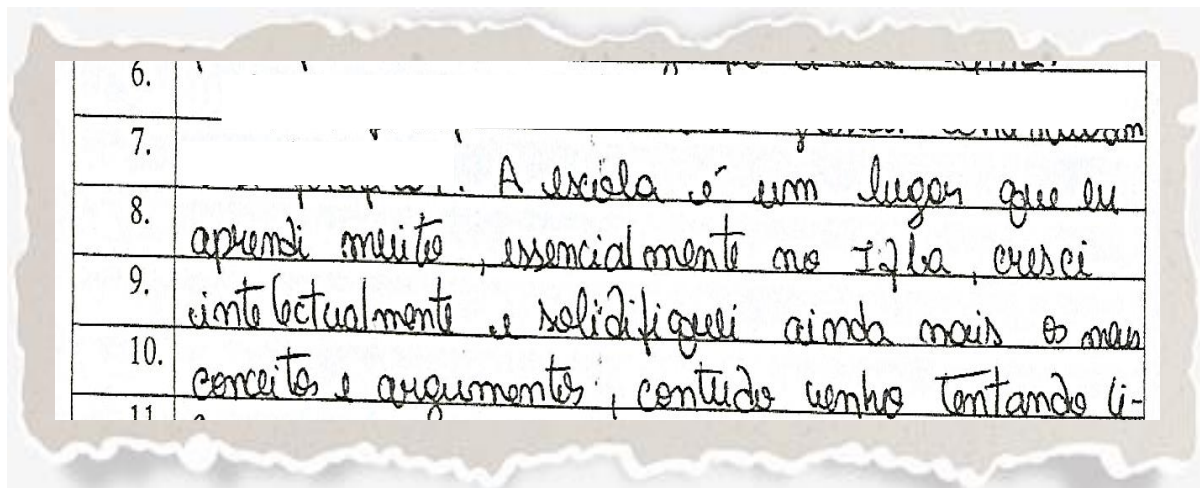 6.
7.
A escola é um lugar que eu
8.
aprendi muito, essencialmente no Ifba, cresci
9.
intelectualmente e solidifiquei ainda mais os meus
10.
conceitos e argumentos, contudo venho tentando li-
11